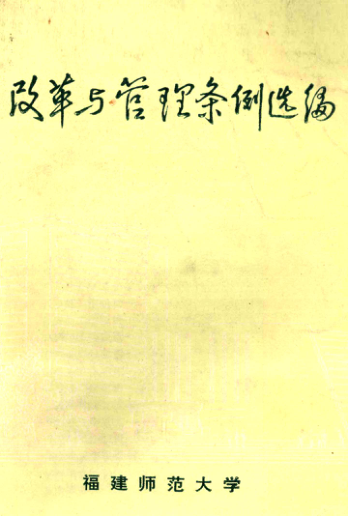 改革与管理条例选编
福建师范大学